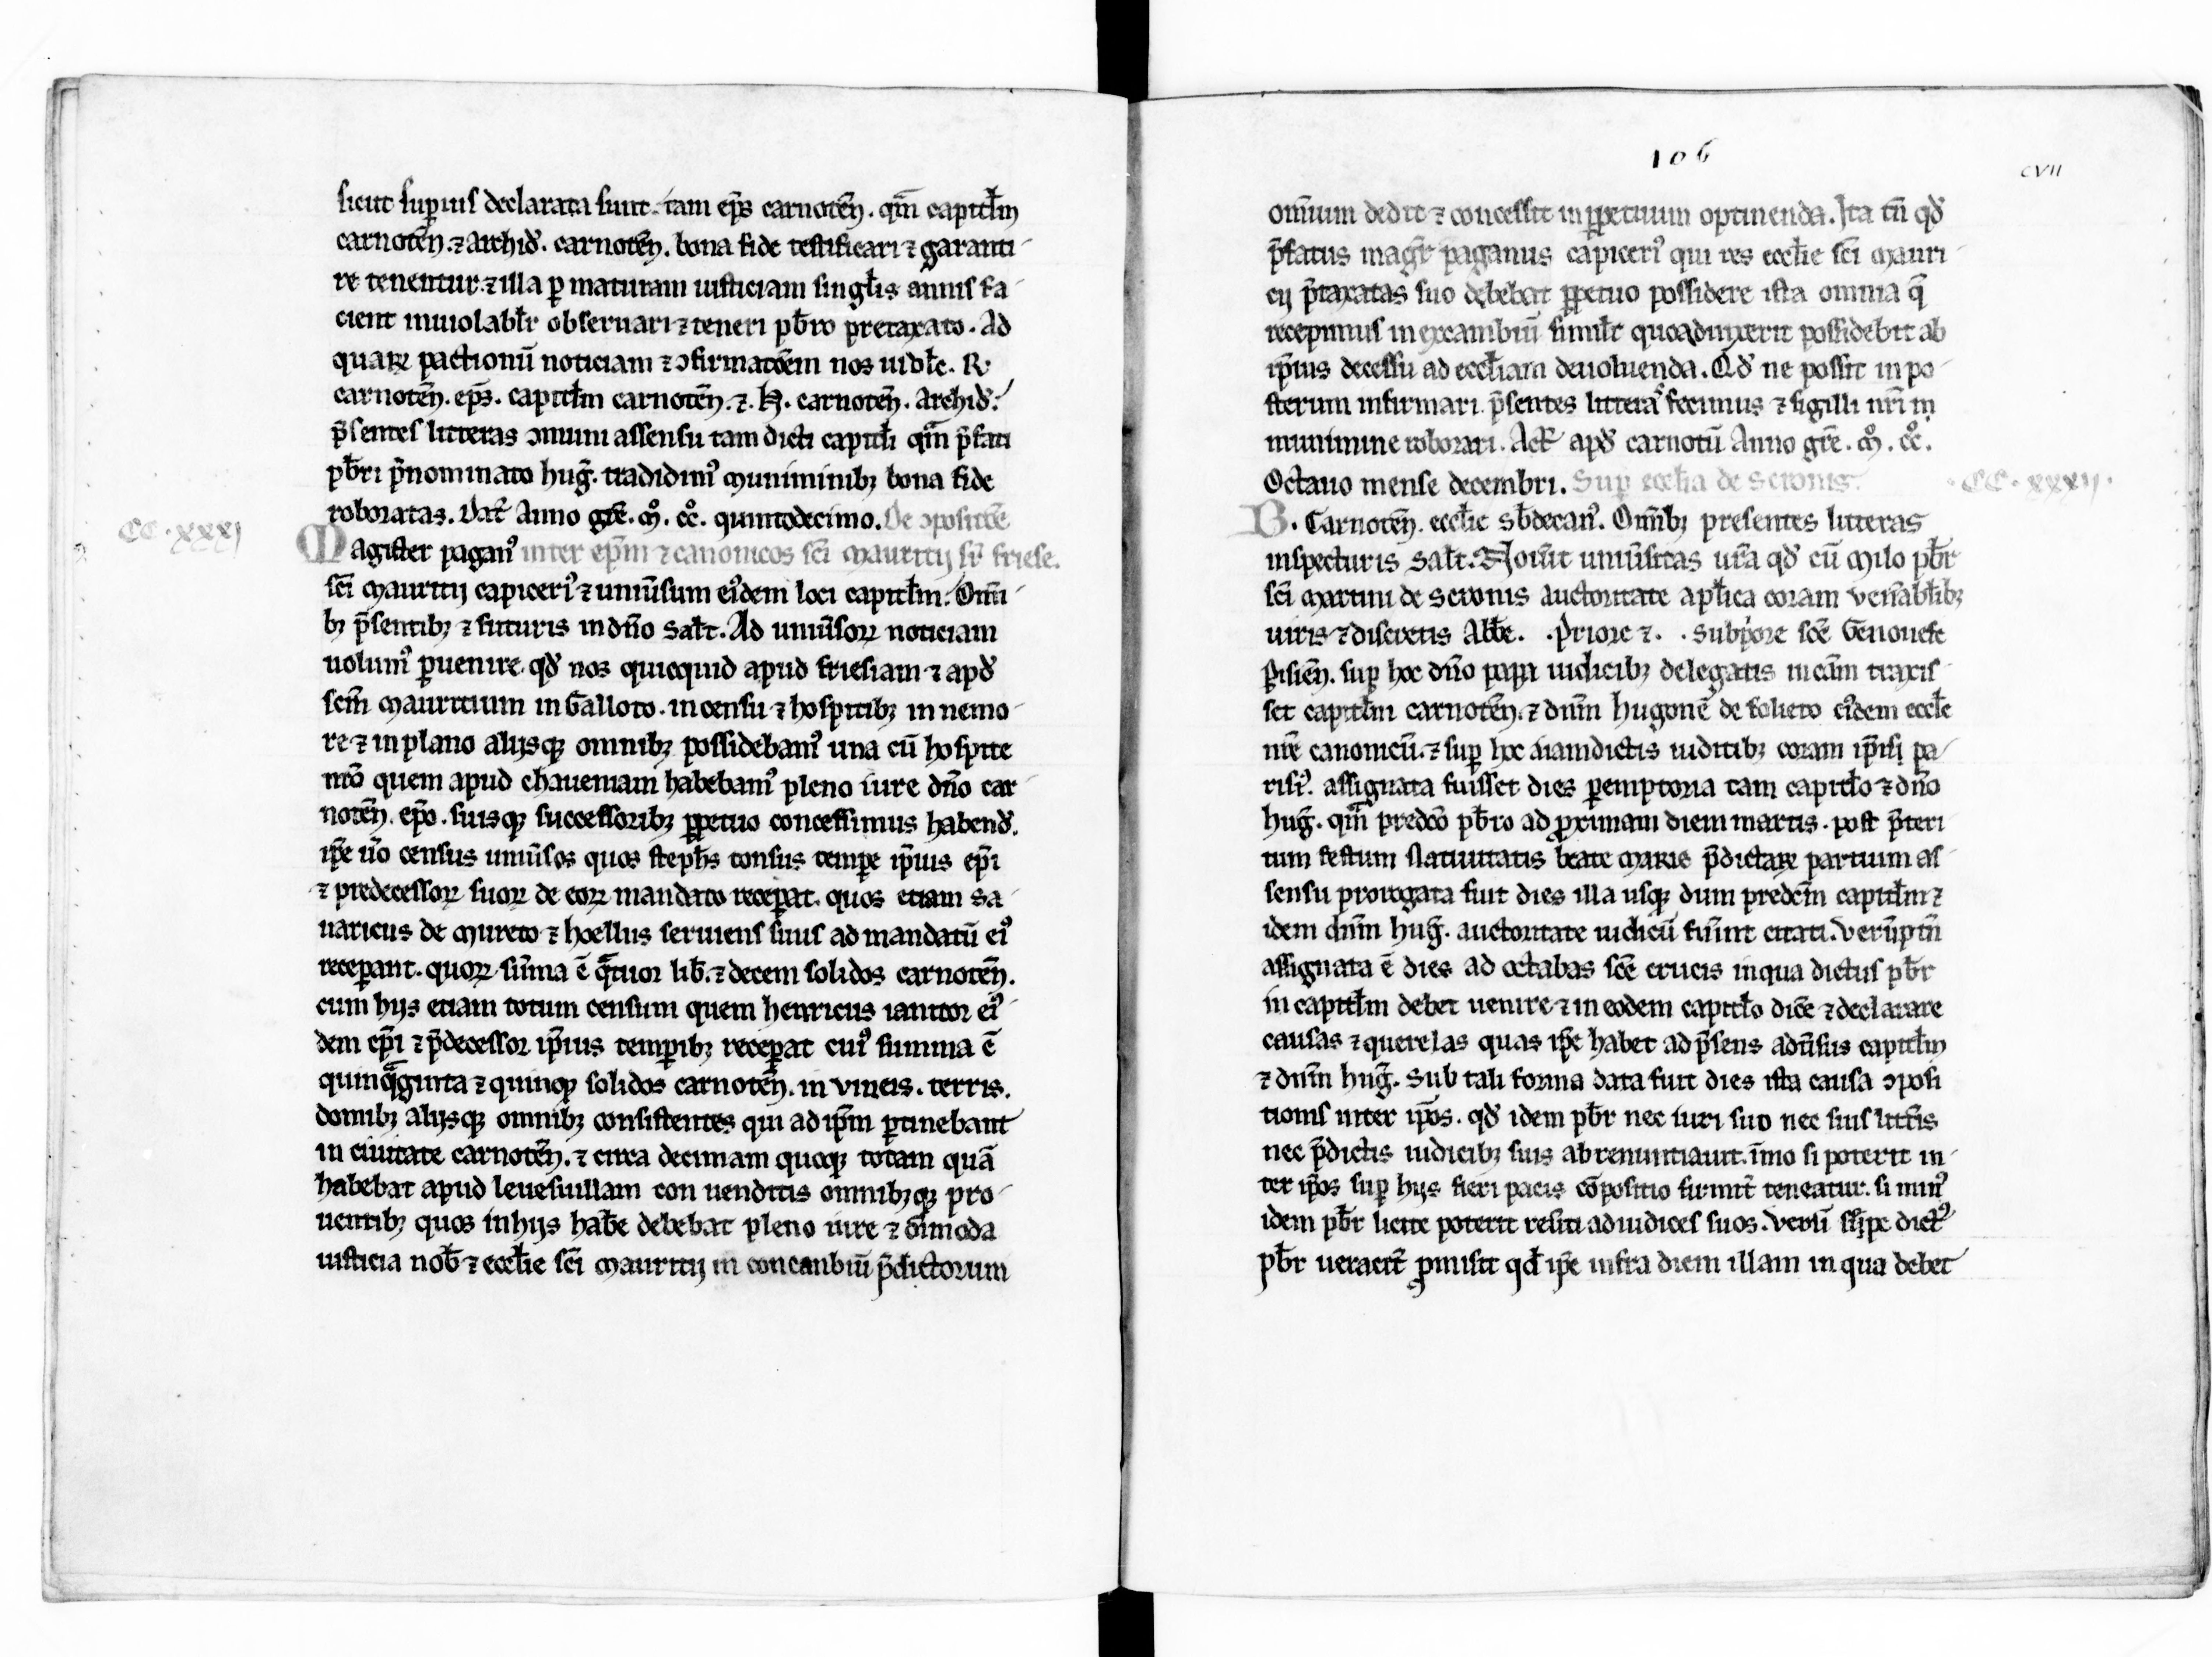 sicut sup̄ius declarata sunt. tam ep̄s carnoteñ. qm̄ capitl̄m
carnoteñ. ⁊ archid̄. carnoteñ. bona fide testificari ⁊ garanti
re tenentur. ⁊ illa ꝑ maturam iusticiam singl̄is annis fa
cient inuiolabl̄r obseruari ⁊ teneri pb̄ro pretaxato. Ad
quaꝝ pactionū noticiam ⁊ ꝯfirmatōem nos uidl̄c. R.
carnoteñ. ep̄s. capitl̄m carnoteñ. ⁊. H. carnoteñ. Archid̄.
p̄sentes litteras ꝯmuni assensu tam dicti capitl̄i qm̄ p̄fati
pb̄ri p̄nominato hug̃. tradidimꝰ muniminibꝫ bona fide
roboratas. Dat̄ Anno gr̄e. mͦ. ccͦ. quintodecimo. De ꝯpositōe
CC.xxxj
Magister paganꝰ inter ep̄m ⁊ canonicos sc̄i mauritij sr̄ friese.
sc̄i mauritij capiceriꝰ ⁊ uniūsum eiꝰdem loci capitl̄m. Om̄i
bꝫ p̄sentibꝫ ⁊ futuris in dn̄o salt̄. Ad uniūsoꝝ noticiam
uolumꝰ ꝑuenire qd̄ nos quicquid apud friesiam ⁊ apd̄
sc̄m mauritium in Galloto. in censu ⁊ hospitibꝫ in nemo
re ⁊ in plano alijsqꝫ omnibꝫ possidebamꝰ una cū hospite
nr̄o quem apud chaueniam habebamꝰ pleno iure dn̄o car
noteñ. ep̄o. suisqꝫ successoribꝫ ꝑpetuo concessimus habend̄.
ip̄e ūo census uniūsos quos steph̄s tonsus tempe ip̄ius ep̄i
⁊ predecessoꝝ suoꝝ de eoꝝ mandato receꝑat. quos etiam sa
uaricus de mureto ⁊ hoellus seruiens suus ad mandatū eiꝰ
receꝑant. quoꝝ sūma ē qᵃtuor lib̄. ⁊ decem solidos carnoteñ.
cum hijs etiam totum censum quem henricus ianitor eiꝰ
dem ep̄i ⁊ p̄decessor̄ ip̄ius temꝑibꝫ receꝑat cuiꝰ summa ē
quinqᵃginta ⁊ quinqꝫ solidos carnoteñ. in vineis. terris.
domibꝫ alijsqꝫ omnibꝫ consistentes qui ad ip̄m ꝑtinebant
in ciuitate carnoteñ. ⁊ circa decimam quoqꝫ totam quā
habebat apud leuesuillam con uenditis omnibꝫqꝫ pro
uentibꝫ quos in hijs hab̄e debebat pleno iure ⁊ oīmoda
iusticia nob̄ ⁊ eccl̄ie sc̄i mauritij in concanbiū p̄dictorum
106
CVII
omnium dedit ⁊ concessit in ꝑpetuum optinenda. Ita tn̄ qd̄
p̄fatus magr̄ paganus capiceriꝰ qui res eccl̄ie sc̄i mauri
cij p̄taxatas suo debebat ꝑpetuo possidere ista omnia q̄
recepimus in excambiū simil̄r quoaduixerit possidebit ab
ip̄ius decessu ad eccl̄iam deuoluenda. Qd̄ ne possit in po
sterum infirmari p̄sentes litteras fecimus ⁊ sigilli nr̄i
munimine roborari. Act̄ apd̄ carnotū Anno gr̄e. mͦ. ccͦ.
Octauo mense decembri. Suꝑ eccl̄ia de Seronis.
.CC.xxxij.
B. Carnoteñ. eccl̄ie sb̄decanꝰ. Omībꝫ presentes litteras
inspecturis salt̄. Nouīt uniūsitas ur̄a qd̄ cū Milo pb̄r
sc̄i martini de Seronis auctoritate apl̄ica coram ven̄abl̄ibꝫ
uiris ⁊ discretis Abb̄e. .priore ⁊. .subp̄ore sc̄e Genouefe
ꝑisieñ. suꝑ hoc dn̄o papa iudicibꝫ delegatis in cām traxis
set capitl̄m carnoteñ. ⁊ dn̄m hugonē de folieto eiꝰdem eccl̄e
nr̄e canonicū. ⁊ suꝑ hoc a iamdictis iudicibꝫ coram ip̄is pa
risiꝰ. assignata fuisset dies ꝑemptoria tam capitl̄o ⁊ dn̄o
hug̃. qm̄ predc̄o pb̄ro ad ꝓximam diem martis. post p̄teri
tum festum Natiuitatis beate marie p̄dictaꝝ partium as
sensu prorogata fuit dies illa usqꝫ dum predc̄m capitl̄m ⁊
idem dn̄m hug̃. auctoritate iudicū fuīnt citati. Verūptn̄
assignata ē dies ad octabas sc̄e crucis in qua dictus pb̄r
in capitl̄m debet uenire ⁊ in eodem capitl̄o dic̄e ⁊ declarare
causas ⁊ querelas quas ip̄e habet ad p̄sens adūsus capitl̄m
⁊ dn̄m hug̃. Sub tali forma data fuit dies ista causa ꝯposi
tionis inter ip̄os. qd̄ idem pb̄r nec iuri suo nec suis litt̄is
nec p̄dictis iudicibꝫ suis abrenuntiauit. īmo si poterit in
ter ip̄os suꝑ hijs fieri pacis cōpositio firmit̄ teneatur. si minꝰ
idem pb̄r licite poterit reūti ad iudices suos. Verū dictꝰ
pb̄r ueracit̄ ꝓmisit qd̄ ip̄e infra diem illam in qua debet